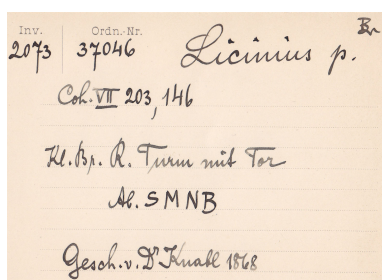 Inv. Ordn.-Nr. Br
2073 37046 Licinius p.
Coh. VII 203, 146
Kl. Br. R. Turm mit Tor
Ab. SMNB
Gesch. v. Dr Knabl 1868